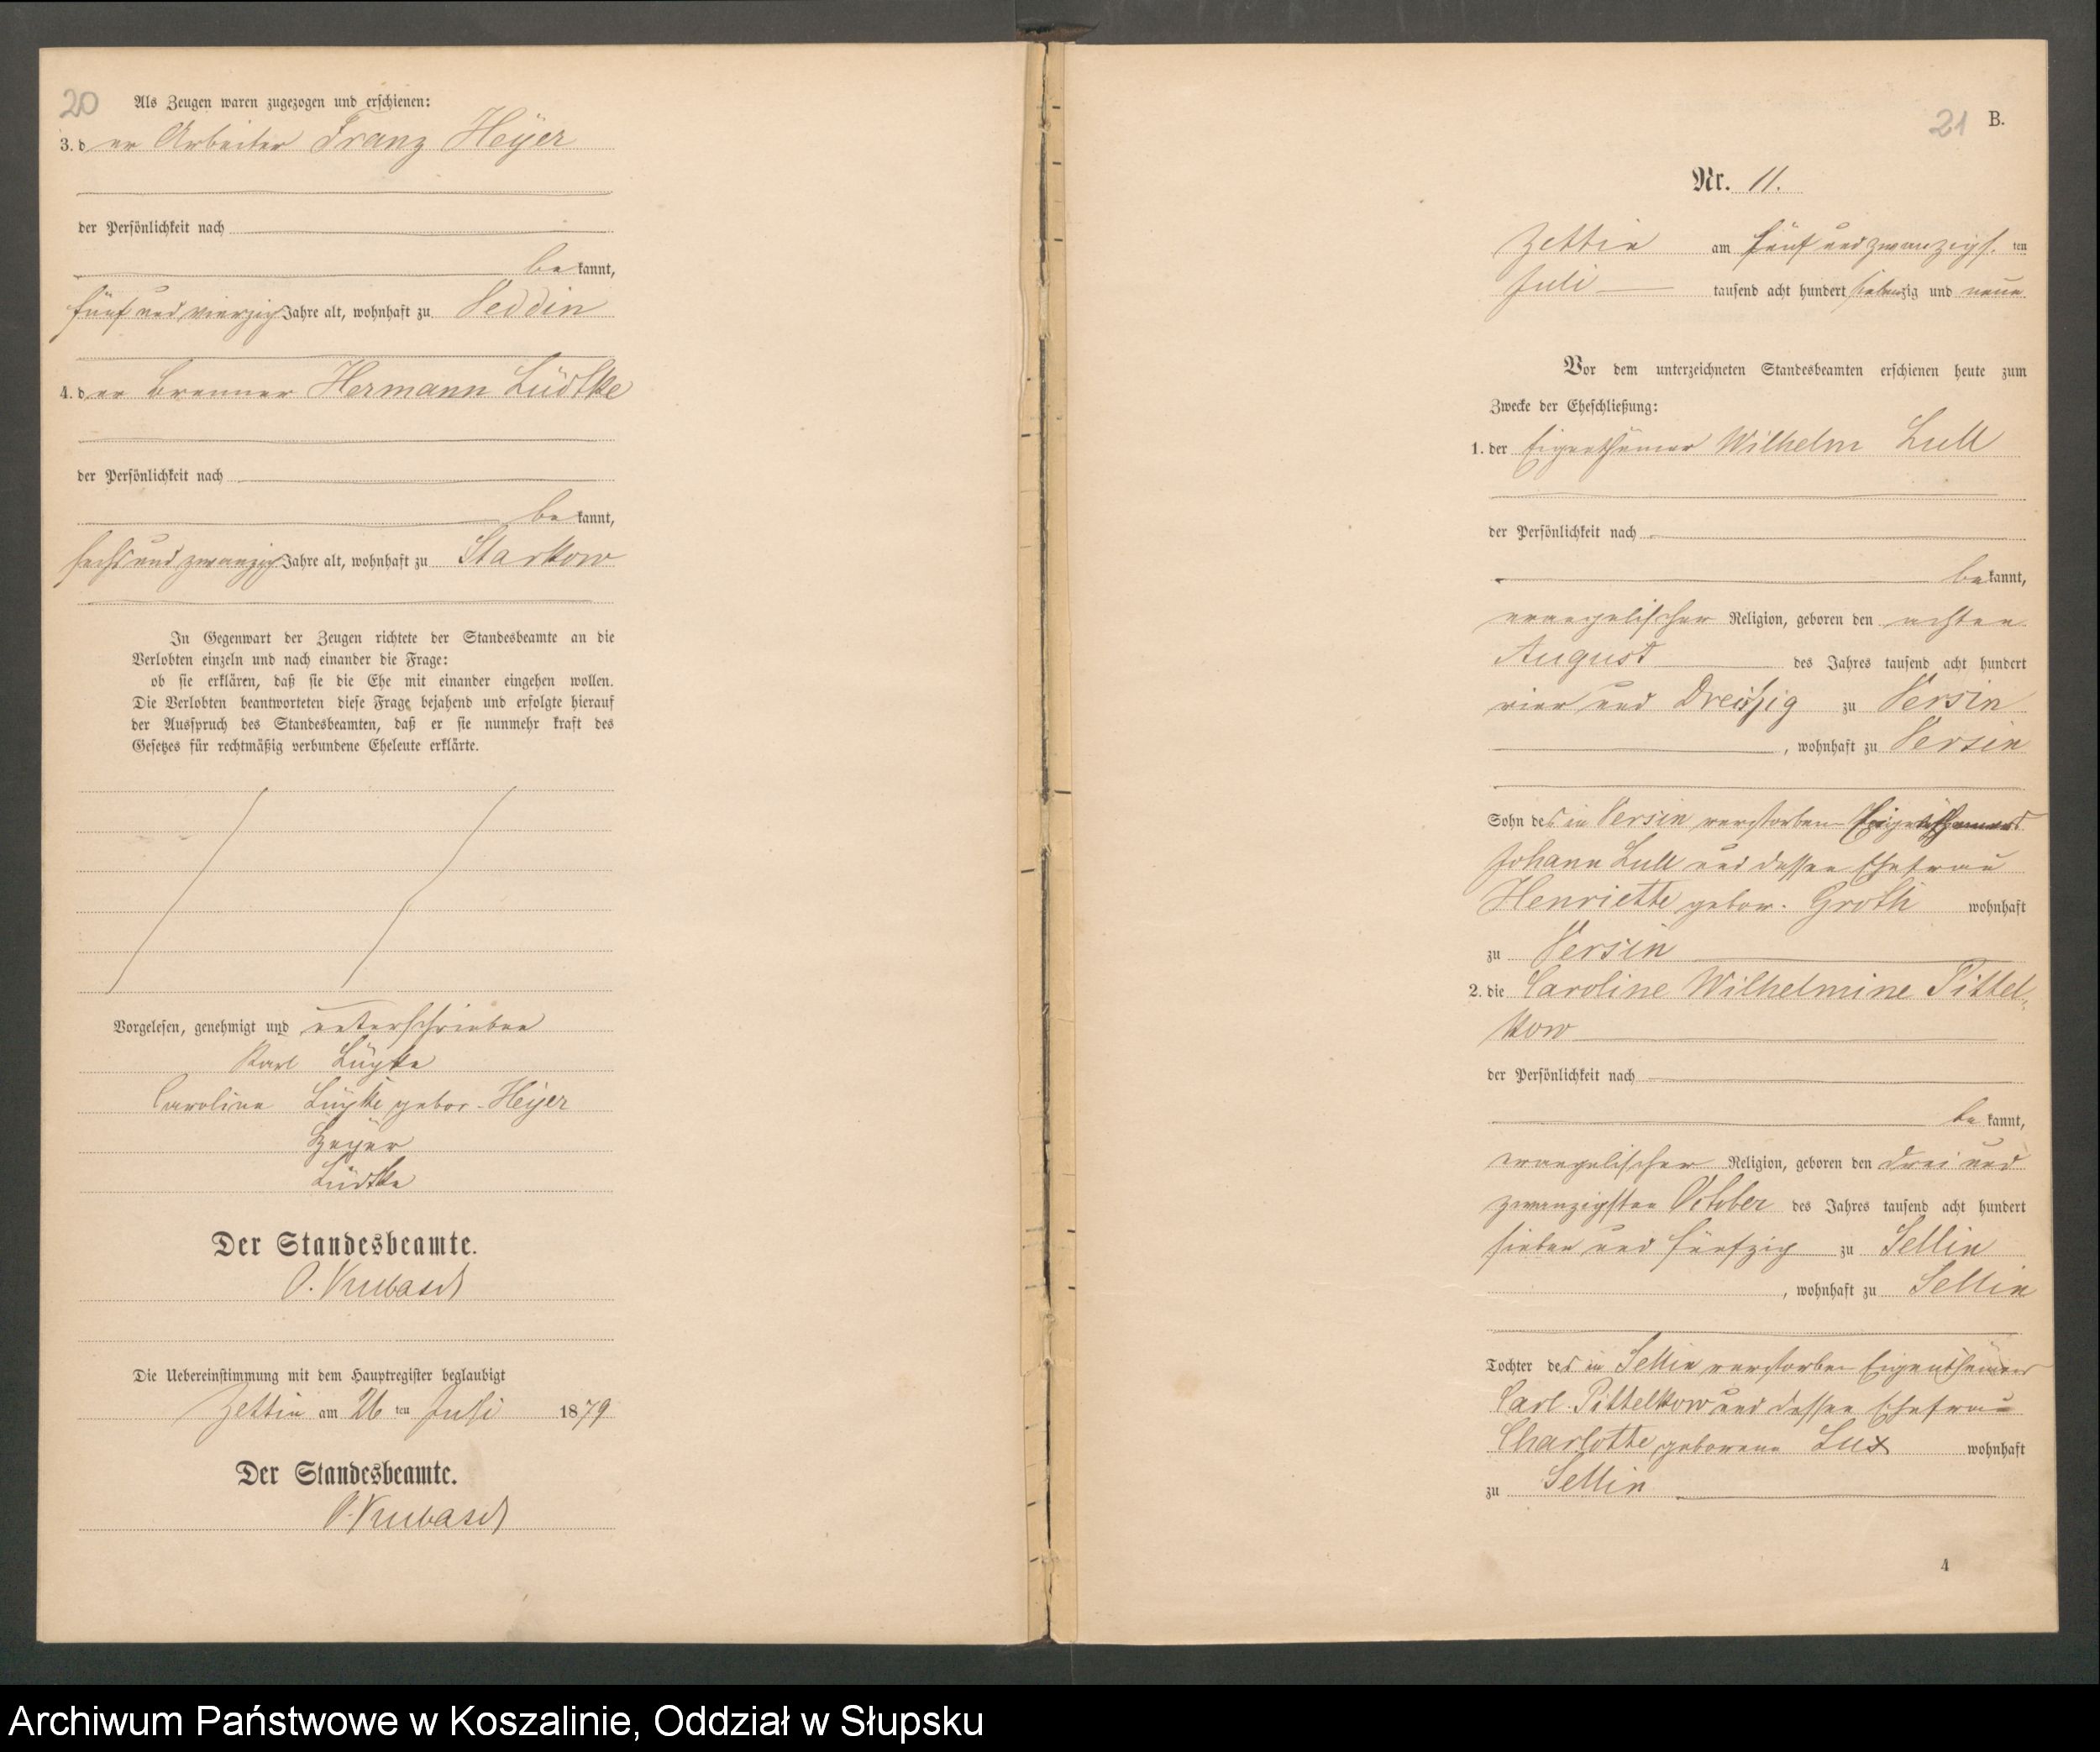 20
Als Zeugen waren zugezogen und erschienen:
3. der Arbeiter Franz Heÿer
der Persönlichkeit nach
bekannt,
fünf und vierzig Jahre alt, wohnhaft zu Veddin
4. der Brenner Hermann Lüdtke
der Persönlichkeit nach
bekannt,
sechs und zwanzig Jahre alt, wohnhaft zu Starkow
In Gegenwart der Zeugen richtete der Standesbeamte an die
Verlobten einzeln und nach einander die Frage:
ob sie erklären, daß sie die Ehe mit einander eingehen wollen.
Die Verlobten beantworteten diese Frage bejahend und erfolgte hierauf
der Ausspruch des Standesbeamten, daß er sie nunmehr kraft des
Gesetzes für rechtmäßig verbundene Eheleute erklärte.
Vorgelesen, genehmigt und unterschrieben
Karl
Caroline gebor. Heÿer
Heÿer
Lüdtke
Der Standesbeamte.
Die Uebereinstimmung mit dem Hauptregister beglaubigt
Zettin am 26 ten Juli 1879
Der Standesbeamte.
21 B.
Nr. 11.
Zettin am fünf und zwanzigs. ten
Juli tausend acht hundert siebenzig und neun
Vor dem unterzeichneten Standesbeamten erschienen heute zum
Zwecke der Eheschließung:
1. der Eigenthümer Wilhelm Lull
der Persönlichkeit nach
bekannt,
evangelischer Religion, geboren den achten
August des Jahres tausend acht hundert
vier und Dreißig zu Versin
, wohnhaft zu Versin
Sohn des in Versin verstorben Eigenthümers
Johann Lull und dessen Ehefrau
Henriette gebor. Groth wohnhaft
zu Versin
2. die Caroline Wilhelmine Pittel-
kow
der Persönlichkeit nach
bekannt,
evangelischer Religion, geboren den drei und
zwanzigsten October des Jahres tausend acht hundert
sieben und fünfzig zu Sellin
, wohnhaft zu Sellin
Tochter des in Sellin verstorben Eigenthümers
Carl Pittelkow und dessen Ehefrau
Charlotte geborene Lux wohnhaft
zu Sellin
4
Archiwum Państwowe w Koszalinie, Oddział w Słupsku